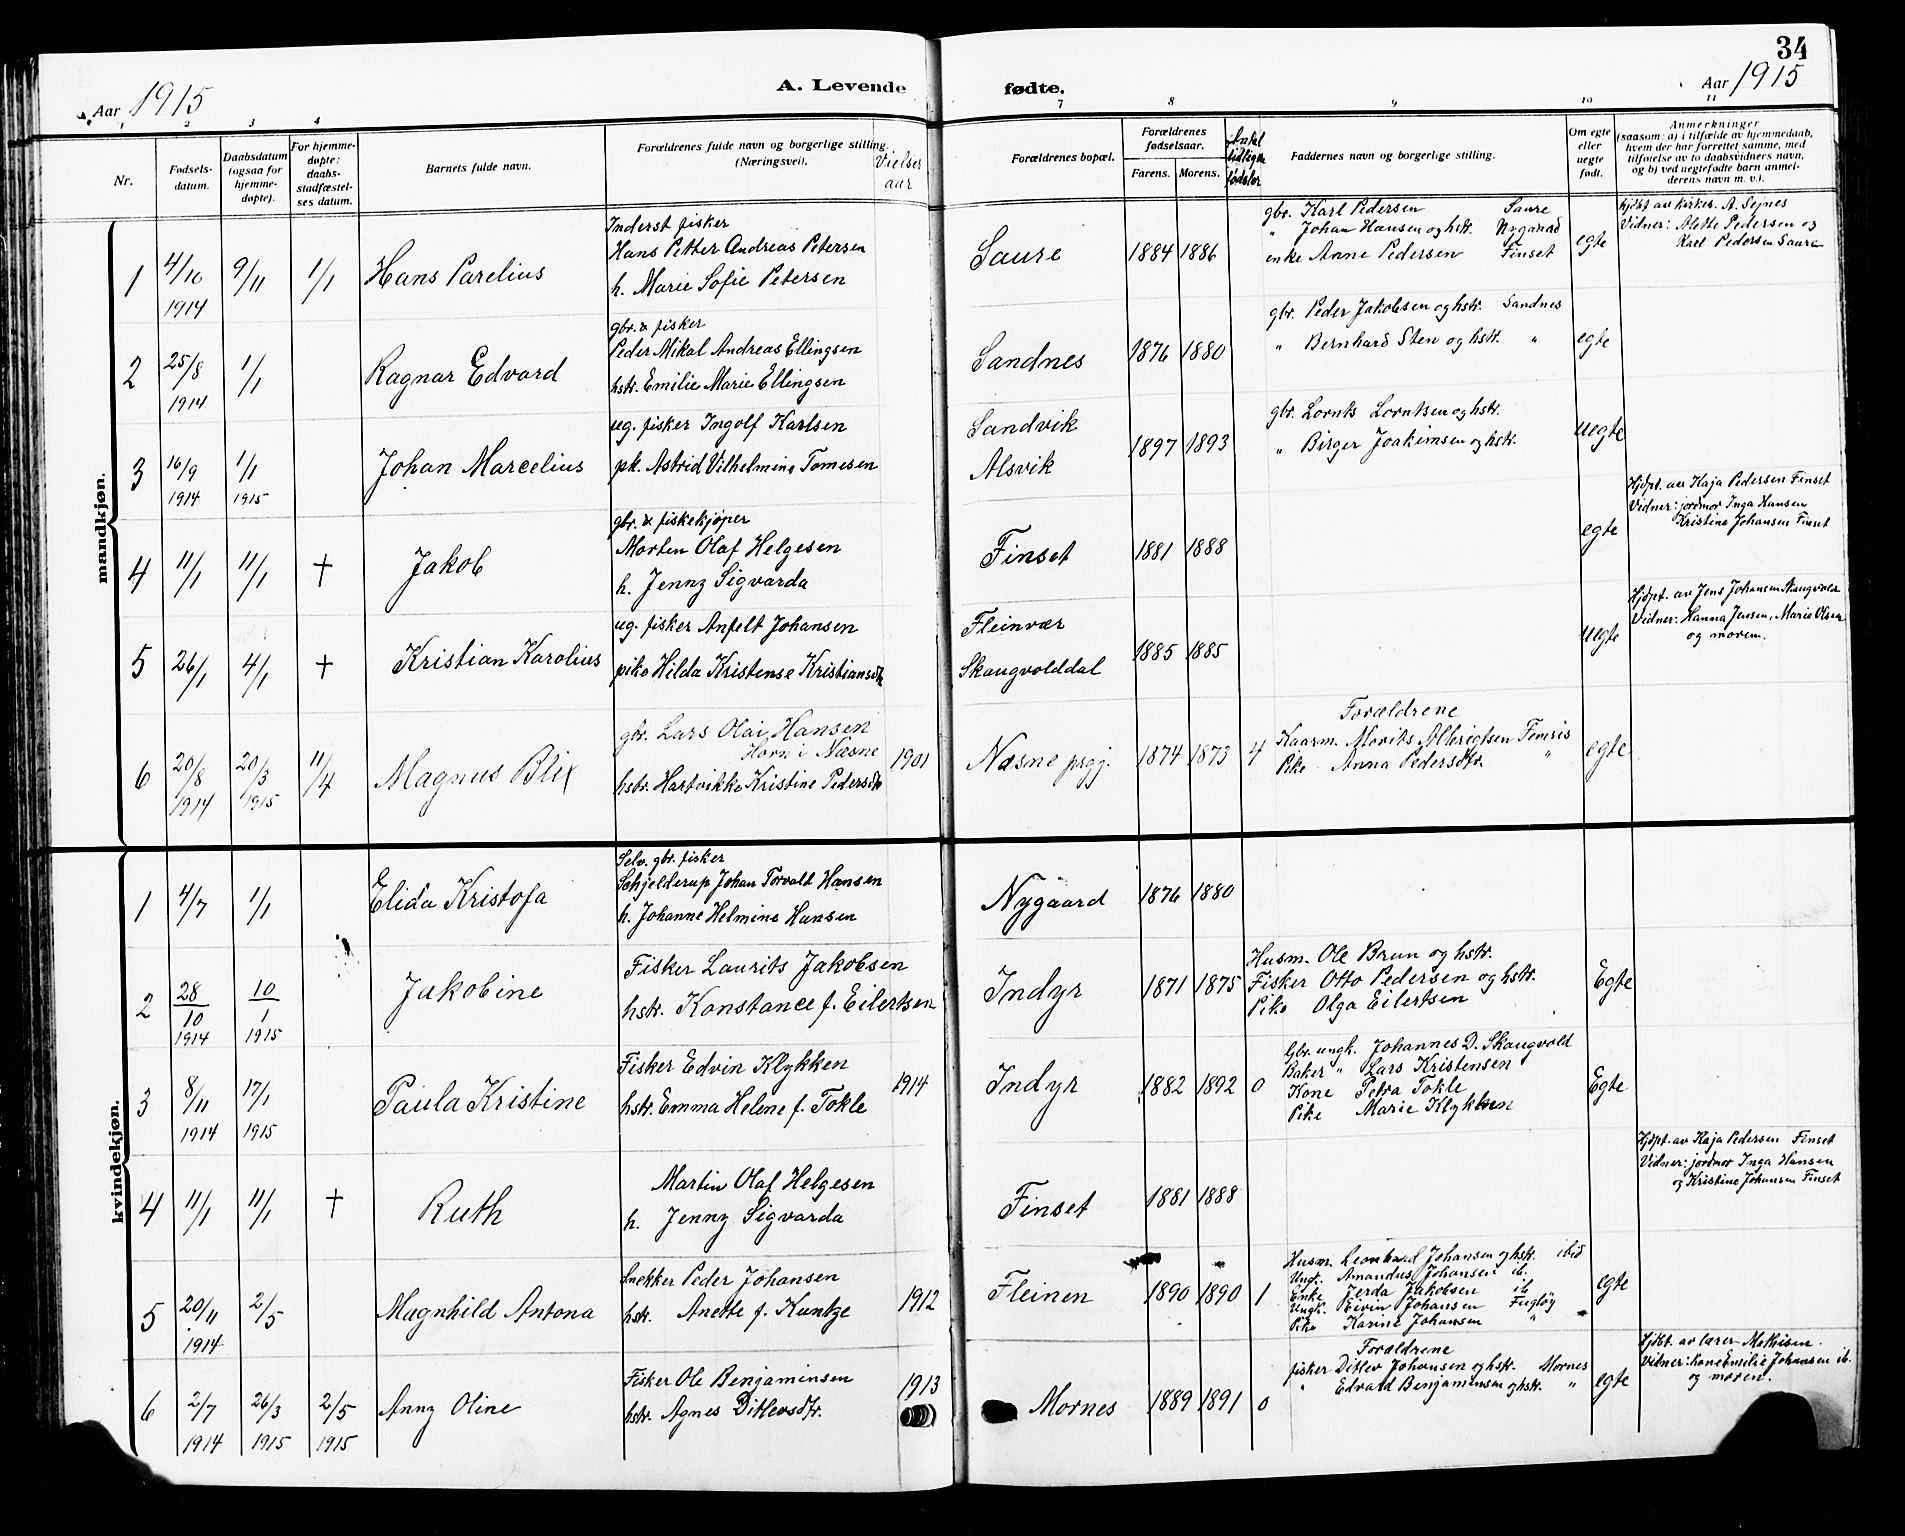 34
Aar 1915
A. Levende fødte.
Aar 1915
1 2 3 4 7 8 9 10 11
Nr.
Fødsels-
datum.
Daabsdatum
(ogsaa for
hjemme-
døpte).
For hjemme-
døpte:
daabs-
stadfæstel-
ses datum.
Barnets fulde navn.
Forældrenes fulde navn og borgerlige stilling
(Næringsvei).
Vielses
aar
Forældrenes bopæl.
Forældrenes
fødselsaar.
Farens. Morens.
Antal
tidligere
fødsler
Faddernes navn og borgerlige stilling.
Om egte
eller
uegte
født.
Anmerkninger
(saasom: a) i tilfælde av hjemmedaab,
hvem der har forrettet samme, med
tilføielse av to daabsvidners navn,
og b) ved uegtefødte barn anmel-
derens navn m. v.).
mandkjøn.
1 4/10 1914 9/11 1/1 Hans Parelius
Inderst fisker
Hans Petter Andreas Petersen
h. Marie Sofie Petersen
Saure 1884 1886
gbr. Karl Pedersen Saure
" Johan Hansen og hstr. Nygaard
enke Anne Pedersen Finset
egte
hjdpt av kirkes. A. Sejnes
Vidner: Alette Pedersen og
Karl Pedersen Saure
2 25/8 1914 1/1 Ragnar Edvard
gbr. & fisker
Peder Mikal Andreas Ellingsen
hstr. Emilie Marie Ellingsen
Sandnes 1876 1880
gbr. Peder Jakobsen og hstr. Sandnes
" Bernhard Sten og hstr. "
egte
3 16/9 1914 1/1 1915 Johan Marcelius
ug. fisker Ingolf Karlsen
pk. Astrid Vilhelmine Tomesen
Sandvik
Alsvik
1897 1893
gbr. Lornts Lorntsen og hstr.
" Birger Joakimsen og hstr.
uegte
4 11/1 11/1 † Jakob
gbr. & fiskekjøper
Morten Olaf Helgesen
h. Jenny Sigvarda
Finset 1881 1888
egte
Hjdpt. av Kaja Pedersen Finset
Vidner: jordmor Inga Hansen
Kristine Johansen Finset
5 26/1 4/1 † Kristian Karolius
ug. fisker Anfelt Johansen
pike Hilda Kristense Kristiansdtr
Fleinvær
Skaugvolddal
1885 1885
uegte
Hjdpt. av Jens Johansen Skaugvolda
Vidner: Hanna Jensen, Marie Olsen
og moren.
6 20/8 1914 20/3 1915 11/4 Magnus Blix
gbr. Lars Olai Hansen
Horn i Næsne
hstr. Hartvikke Kristine Pedersdtr
1901
Næsne prgj. 1874 1873 4
Forældrene
Kaarm. Morits Albrigtsen Fomris
Pike Anna Pedersdtr. "
egte
kvindekjøn.
1 4/7 1/1 Elida Kristofa
Selv. gbr. fisker
Schjelderup Johan Torvald Hansen
h. Johanne Helmine Hansen
Nygaard 1876 1880
2 28/10 1914 10/1 1915 Jakobine
Fisker Laurits Jakobsen
hstr. Konstance f. Eilertsen
Indyr 1871 1875
Husm. Ole Brun og hstr.
Fisker Otto Pedersen og hstr.
Pike Olga Eilertsen
Egte
3 8/11 1914 17/1 1915 Paula Kristine
Fisker Edvin Klykken
hstr. Emma Helene f. Tokle
1914
Indyr 1882 1892 0
Gbr. ungk. Johannes D. Skaugvold
Baker " Lars Kristensen
Kone Petra Tokle
Pike Marie Klykken
Egte
4 11/1 11/1 † Ruth
Martin Olaf Helgesen
h. Jenny Sigvarda
Finset 1881 1888
Hjdpt. av Kaja Pedersen Finset
Vidner: jordmor Inga Hansen
og Kristine Johansen Finset
5 20/11 1914 2/5 Magnhild Antona
Snekker Peder Johansen
hstr. Anette f. Kuntze
1912
Fleinen 1890 1890 1
Husm. Leonhard Johansen og hstr. ibid
Ungk. Amandus Johansen ib.
Enke Jerda Jakobsen ib
Ungk. Eivin Johansen Fugløy
Pike Karine Johansen "
egte
6 2/7 1914 26/3 1915 2/5 1915 Anny Oline
Fisker Ole Benjaminsen
hstr. Agnes Ditlevsdtr.
1913
Mornes 1889 1891 0
Forældrene
fisker Ditlev Johansen og hstr. Mornes
" Edvald Benjaminsen og hstr. "
egte
Hjdpt. av lærer Mathisen.
Vidner: Kone Emilie Johansen ib.
og moren.